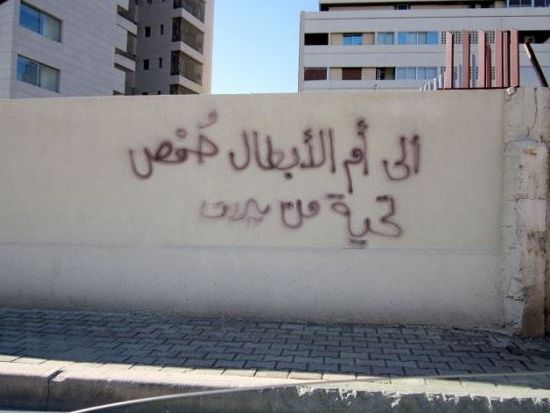 الى أم الأبطال حُمص
تحية من بيروت